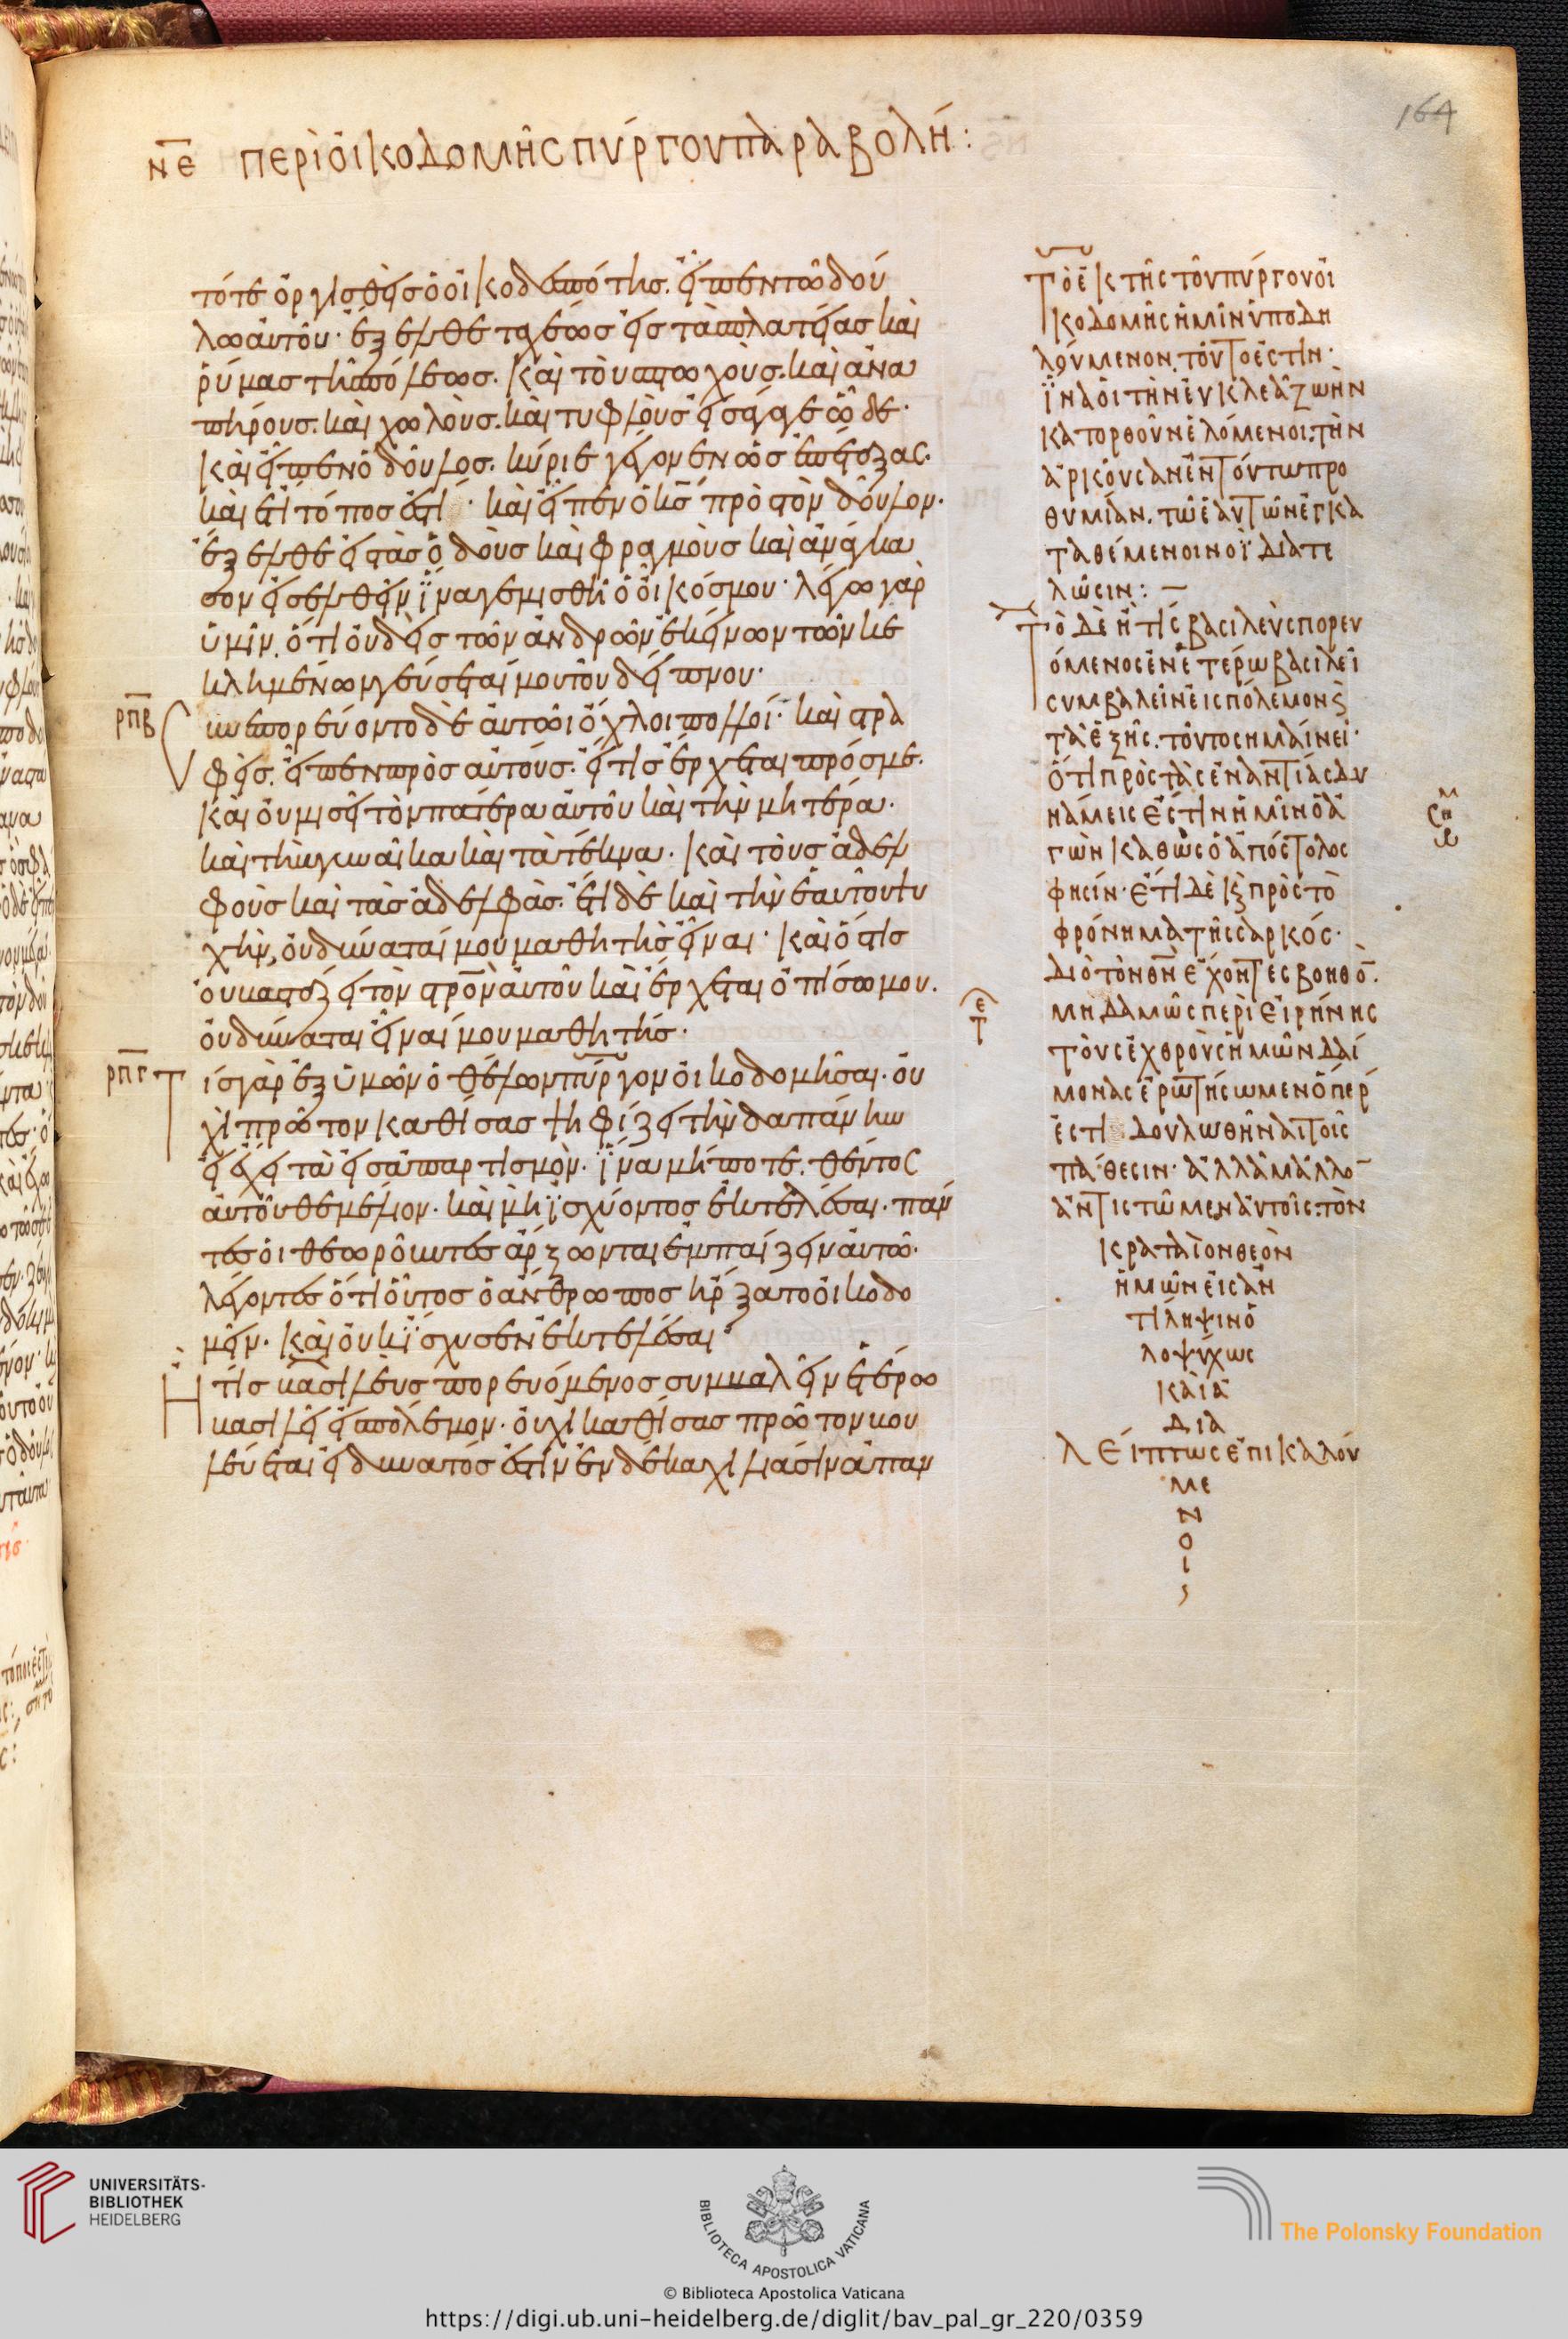 νε περὶ οἰκοδομῆς πύργου παραβολή:
τότε ὀργισθεὶς ὁ οἰκοδεσπότης. εἶπεν τῶ δού
λω αὐτοῦ· ἔξελθε ταχέως εἰς τὰς πλατείας καὶ
ῥύμας τῆς πόλεως. καὶ τοὺς πτωχοὺς. καὶ ἀνα
πήρους. καὶ χωλοὺς. καὶ τυφλοὺς εἰσάγαγε ὧδε·
καὶ εἶπεν ὁ δοῦλος. κύριε γέγονεν ὡς ἐπέταξας·
καὶ ἔτι τόπος ἐστί· καὶ εἶπεν ὁ κ̅ς̅ πρὸς τὸν δοῦλον·
ἔξελθε εἰς τὰς ὁδοὺς καὶ φραγμοὺς καὶ ἀνάγκα
σον εἰσελθεῖν ἵνα γεμισθῆ ὁ οἶκός μου· λέγω γὰρ
ὑμῖν. ὅτι οὐδεὶς τῶν ἀνδρῶν ἐκείνων τῶν κε
κλημένων γεύσεταί μου τοῦ δείπνου·
ρπβ Συνεπορεύοντο δὲ αὐτῶ οἱ ὄχλοι πολλοί· καὶ στρα
φεὶς. εἶπεν πρὸς αὐτούς. εἴ τις ἔρχεται πρός με.
καὶ οὐ μισεῖ τὸν πατέρα αὐτοῦ καὶ τὴν μητέρα.
καὶ τὴν γυναῖκα καὶ τὰ τέκνα. καὶ τοὺς ἀδελ
φοὺς καὶ τὰς ἀδελφάς. ἔτι δὲ καὶ τὴν ἑαυτοῦ ψυ
χὴν, οὐ δύναταί μου μαθητὴς εἶναι· καὶ ὅστις
οὐ βαστάζει τὸν σ̅τ̅ρ̅ο̅ν̅ αὐτοῦ καὶ ἔρχεται ὀπίσω μου.
οὐ δύναται εἶναί μου μαθητής·
ρπγ Τίς γὰρ ἐξ ὑμῶν ὁ θέλων πύργον οἰκοδομῆσαι. οὐ
χὶ πρῶτον καθίσας ψηφίζει τὴν δαπάνην
εἰ ἔχει τὰ εἰς ἀπαρτισμὸν. ἵνα μήποτε. θέντος
αὐτοῦ θεμέλιον. καὶ μὴ ἰσχύοντος ἐκτελέσαι. πάν
τες οἱ θεωροῦντες ἄρξωνται ἐμπαίζειν αὐτῶ·
λέγοντες ὅτι οὗτος ὁ ἄνθρωπος ἤρξατο οἰκοδο
μεῖν. καὶ οὐκ ἴσχυσεν ἐκτελέσαι·
Ἢ τίς βασιλεὺς πορευόμενος συμβαλεῖν ἑτέρω
βασιλεῖ εἰς πόλεμον. οὐχὶ καθίσας πρῶτον βου
λεύεται εἰ δυνατός ἐστιν ἐν δέκα χιλιάσιν ἀπαν
164
Τὸ ἐκ τῆς τοῦ πύργου οἰ
κοδομῆς ἡμῖν ὑποδη
λούμενον. τοῦτο ἐστιν·
ἵνα οἱ τὴν εὐκλεᾶ ζωὴν
κατορθοῦν ἑλόμενοι. τὴν
ἀρκοῦσαν ἐν τούτω προ
θυμίαν. τῶ ἑαυτῶν ἐγκα
ταθέμενοι νοῒ διατε
λῶσιν: —
Τὸ δὲ ἢ τίς βασιλεὺς πορευ
όμενος ἐν ἑτέρω βασιλεῖ
συμβαλεῖν εἰς πόλεμον ϗ
τὰ ἑξῆς. τοῦτο σημαίνει·
Ὅτι πρὸς τὰς ἐναντίας δυ
νάμεις ἐστὶν ἡμῖν ὁ ἀ
γὼν καθὼς ὁ ἀπόστολος
φησίν· ἔτι δὲ ϗ πρὸς τὸ
φρόνημα τῆς σαρκός·
διὸ τὸν θ̅ν̅ ἔχοντες βοηθὸ̅.
μηδαμῶς περὶ εἰρήνης
τοὺς ἐχθροὺς ἡμῶν δαί
μονας ἐρωτήσωμεν ὅπερ
ἐστὶ δουλωθῆναι τοῖς
πάθεσιν· ἀλλὰ μᾶλλο̅
ἀντιστῶμεν αὐτοῖς. τὸν
κραταῖον θεὸν
ἡμῶν εἰς ἀν
τίληψιν ὁ
λοψύχως
καὶ ἀ
δια
λείπτως ἐπικαλού
με
ν
ο
ι
ς
UNIVERSITÄTS-
BIBLIOTHEK
HEIDELBERG
BIBLIOTECA APOSTOLICA VATICANA
The Polonsky Foundation
© Biblioteca Apostolica Vaticana
https://digi.ub.uni-heidelberg.de/diglit/bav_pal_gr_220/0359